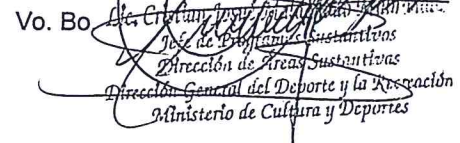 Vo. Bo.
Lic. Cristian
Jefe de Programas Sustantivos
Dirección de Áreas Sustantivas
Dirección General del Deporte y la Recreación
Ministerio de Cultura y Deportes